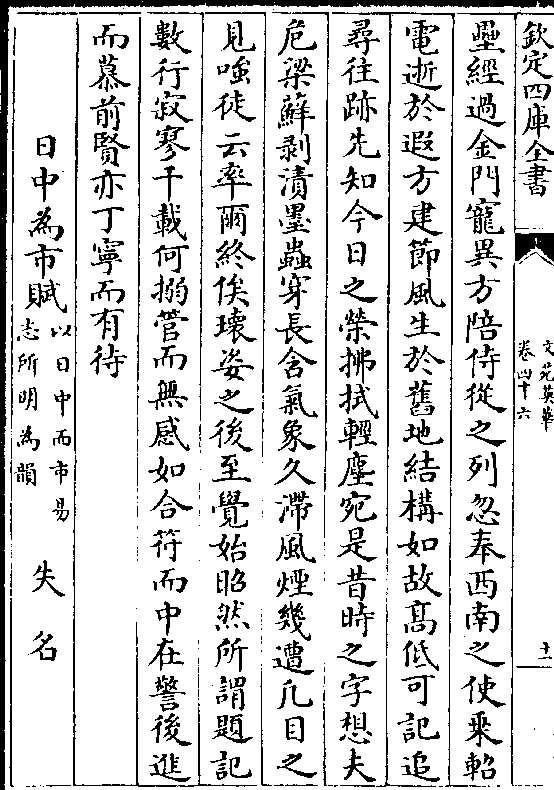 欽定四庫全書
文苑英華
卷四十六
十一
壘經過金門寵異方陪侍從之列忽奉西南之使乘軺
電逝於遐方建節風生於舊地結構如故高低可記追
尋往跡先知今日之榮拂拭輕塵宛是昔時之字想夫
危梁蘚剥漬墨蟲穿長含氣象久滯風煙幾遭凡目之
見嗤徒云率爾終俟瓌姿之後至覺始昭然所謂題記
數行寂寥千載何搦管而無感如合符而中在警後進
而慕前賢亦丁寧而有待
日中為市賦
以日中而市易
志所明為韻
失名